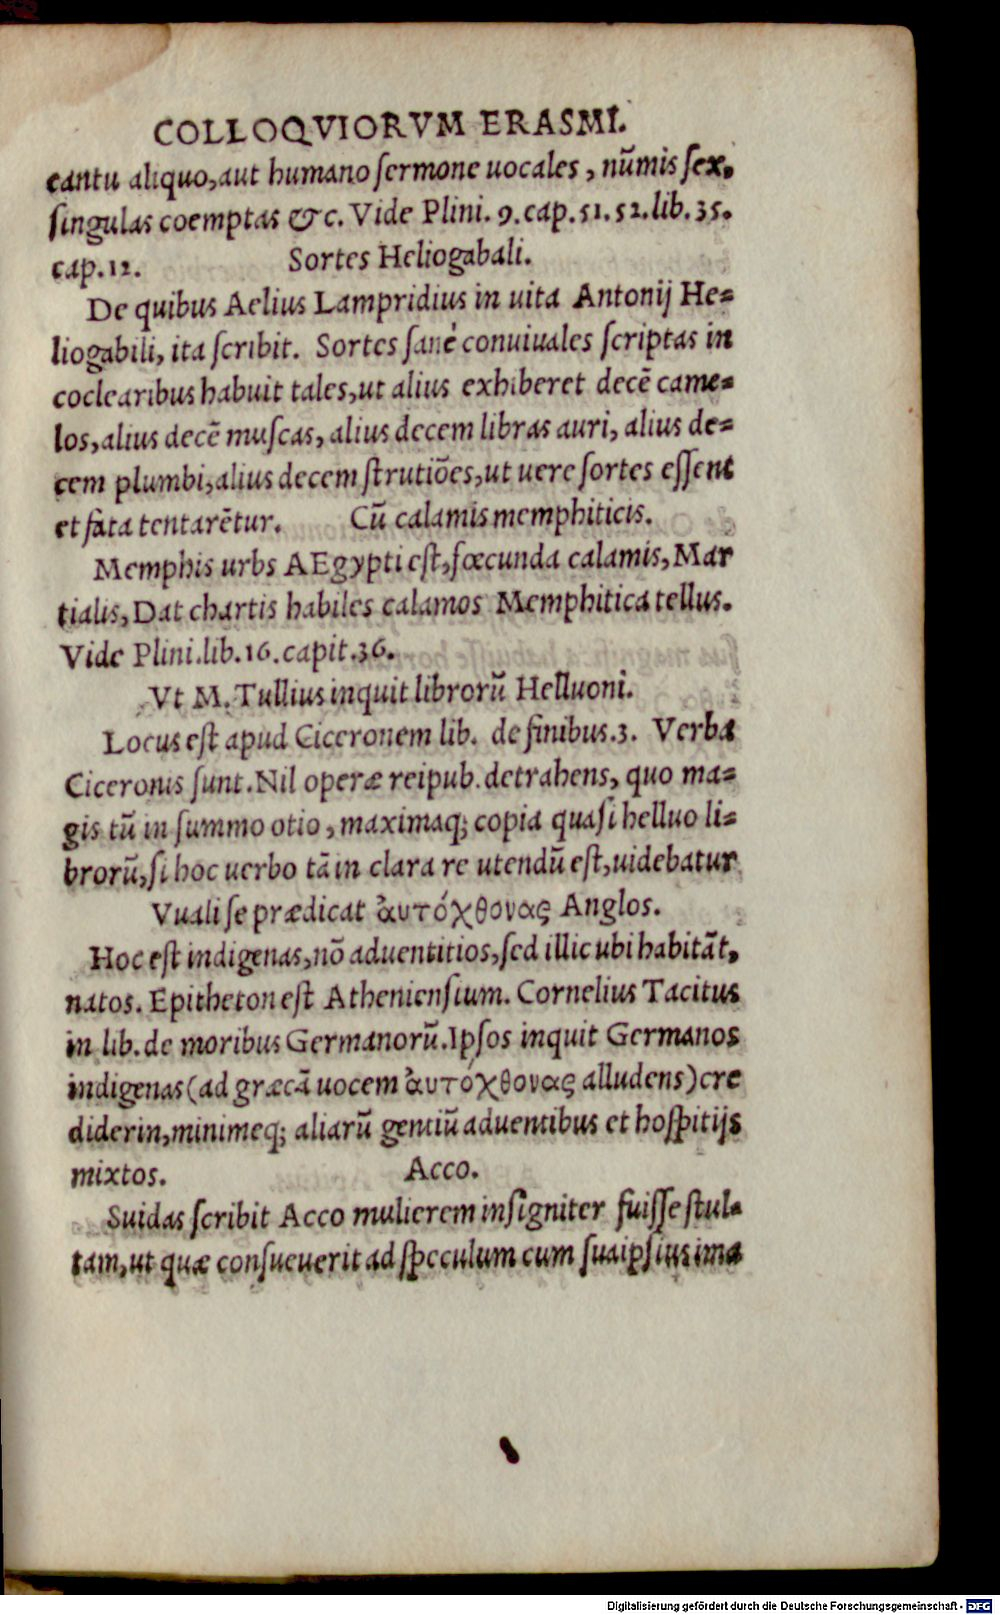 COLLOQVIORVM ERASMI.
cantu aliquo,aut humano ſermone uocales , nũmis ſex.
ſingulas coemptas &c. Vide Plini. 9. cap. 51. 52. lib. 35.
cap. 12. Sortes Heliogabali.
De quibus Aelius Lampridius in uita Antonij He=
liogabili, ita ſcribit. Sortes ſanè conuiuales ſcriptas in
coclearibus habuit tales,ut alius exhiberet decẽ came=
los,alius decẽ muſcas, alius decem libras auri, alius de=
cem plumbi,alius decem ſtrutiões,ut uere ſortes eſſent
et fata tentarẽtur. Cũ calamis memphiticis.
Memphis urbs AEgypti eſt,fœcunda calamis, Mar
tialis, Dat chartis habiles calamos Memphitica tellus.
Vide Plini.lib.16.capit.36.
Vt M. Tullius inquit librorũ Helluoni.
Locus eſt apud Ciceronem lib. de finibus.3. Verba
Ciceronis ſunt. Nil operæ reipub. detrahens, quo ma=
gis tũ in ſummo otio , maximaq; copia quaſi helluo li=
brorũ,ſi hoc uerbo tã in clara re utendũ eſt,uidebatur
Vuali ſe prædicat ἀυτόχθονας Anglos.
Hoc eſt indigenas,nõ aduentitios,ſed illic ubi habitãt,
natos. Epitheton eſt Athenienſium. Cornelius Tacitus
in lib. de moribus Germanorũ.Ipſos inquit Germanos
indigenas(ad græcã uocem ἀυτόχθονας alludens)cre
diderin,minimeq; aliarũ gentiũ aduentibus et hoſpitijs
mixtos. Acco.
Suidas ſcribit Acco mulierem inſigniter fuiſſe ſtul=
tam,ut quæ conſueuerit ad ſpeculum cum ſuaipſius ima
Digitalisierung gefördert durch die Deutsche Forschungsgemeinschaft - DFG